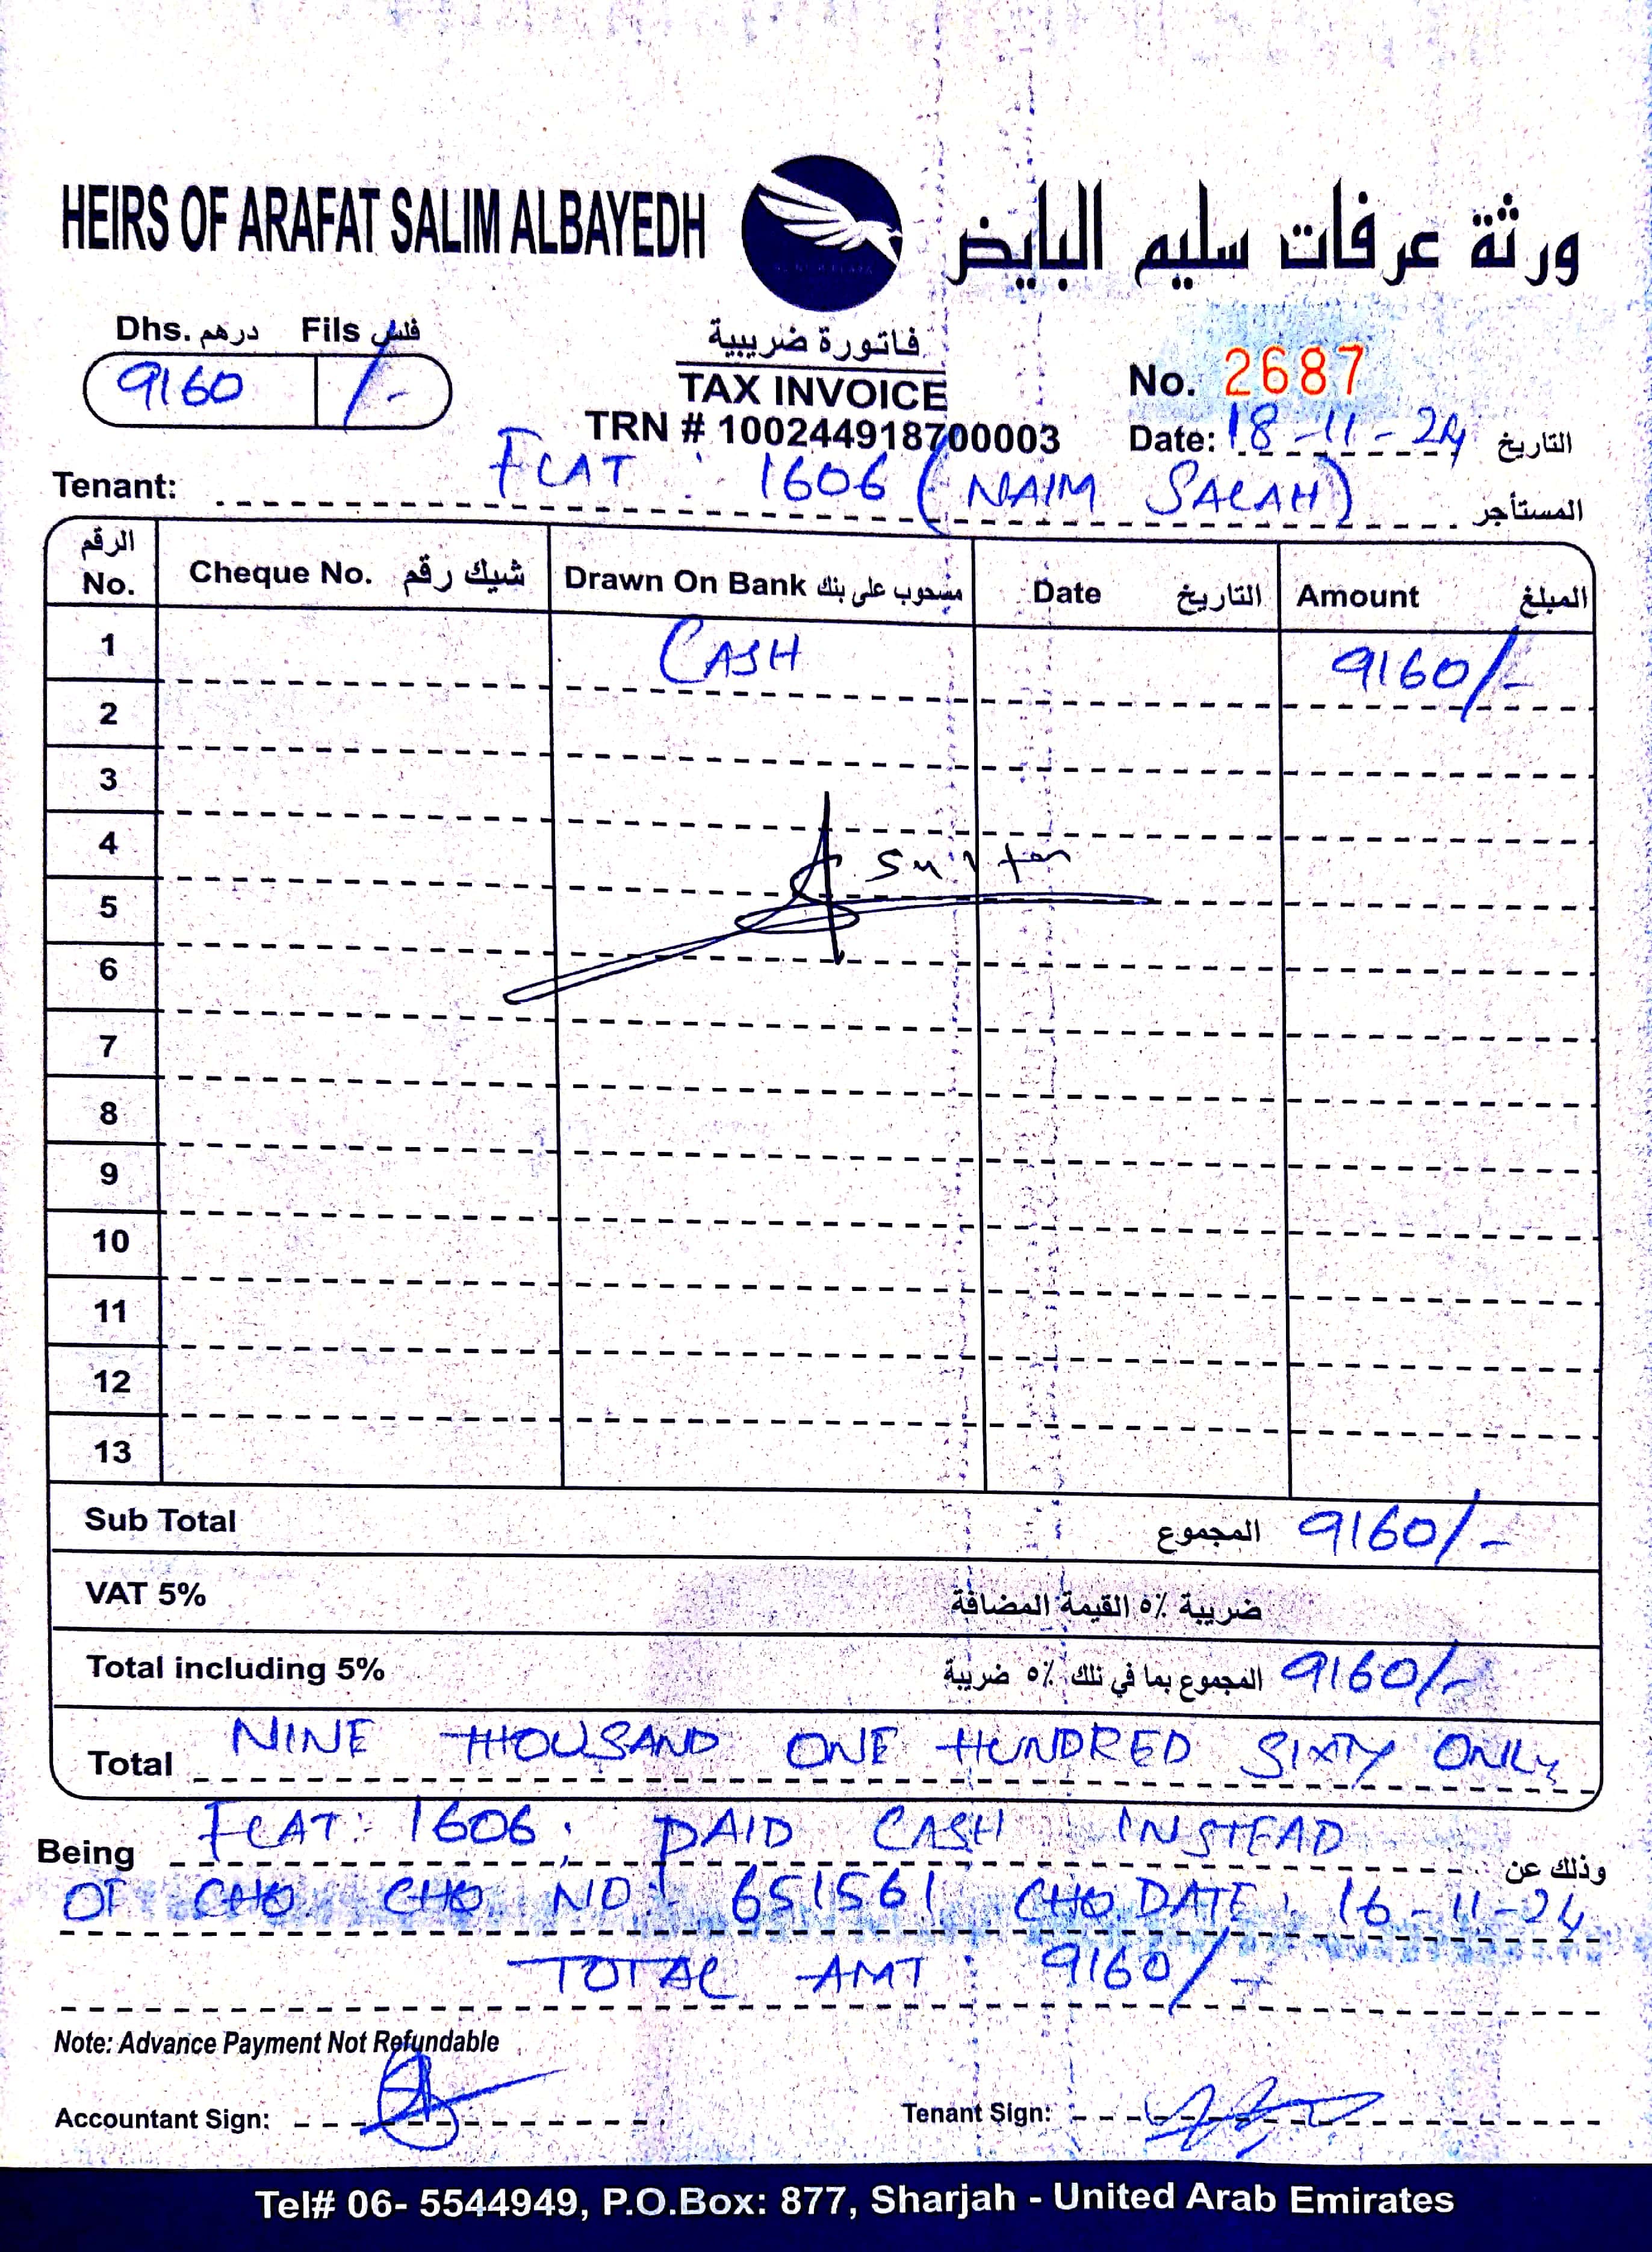 HEIRS OF ARAFAT SALIM ALBAYEDH ورثة عرفات سليم البايض
Dhs. درهم Fils فلس
9160 /-
فاتورة ضريبية
TAX INVOICE
TRN # 100244918700003
No. 2687
Date: 18-11-24 التاريخ
Tenant: FLAT : 1606 (NAIM SALAH) المستأجر
الرقم No. Cheque No. شيك رقم Drawn On Bank مسحوب على بنك Date التاريخ Amount المبلغ
1 CASH 9160/-
2
3
4 Sultan
5
6
7
8
9
10
11
12
13
Sub Total المجموع 9160/-
VAT 5% ضريبة ٥٪ القيمة المضافة
Total including 5% المجموع بما في ذلك ٥٪ ضريبة 9160/-
Total NINE THOUSAND ONE HUNDRED SIXTY ONLY
Being FLAT: 1606, PAID CASH INSTEAD وذلك عن
OF CHQ. CHQ NO: 651561 CHQ DATE: 16-11-24
TOTAL AMT : 9160/-
Note: Advance Payment Not Refundable
Accountant Sign: Tenant Sign:
Tel# 06- 5544949, P.O.Box: 877, Sharjah - United Arab Emirates